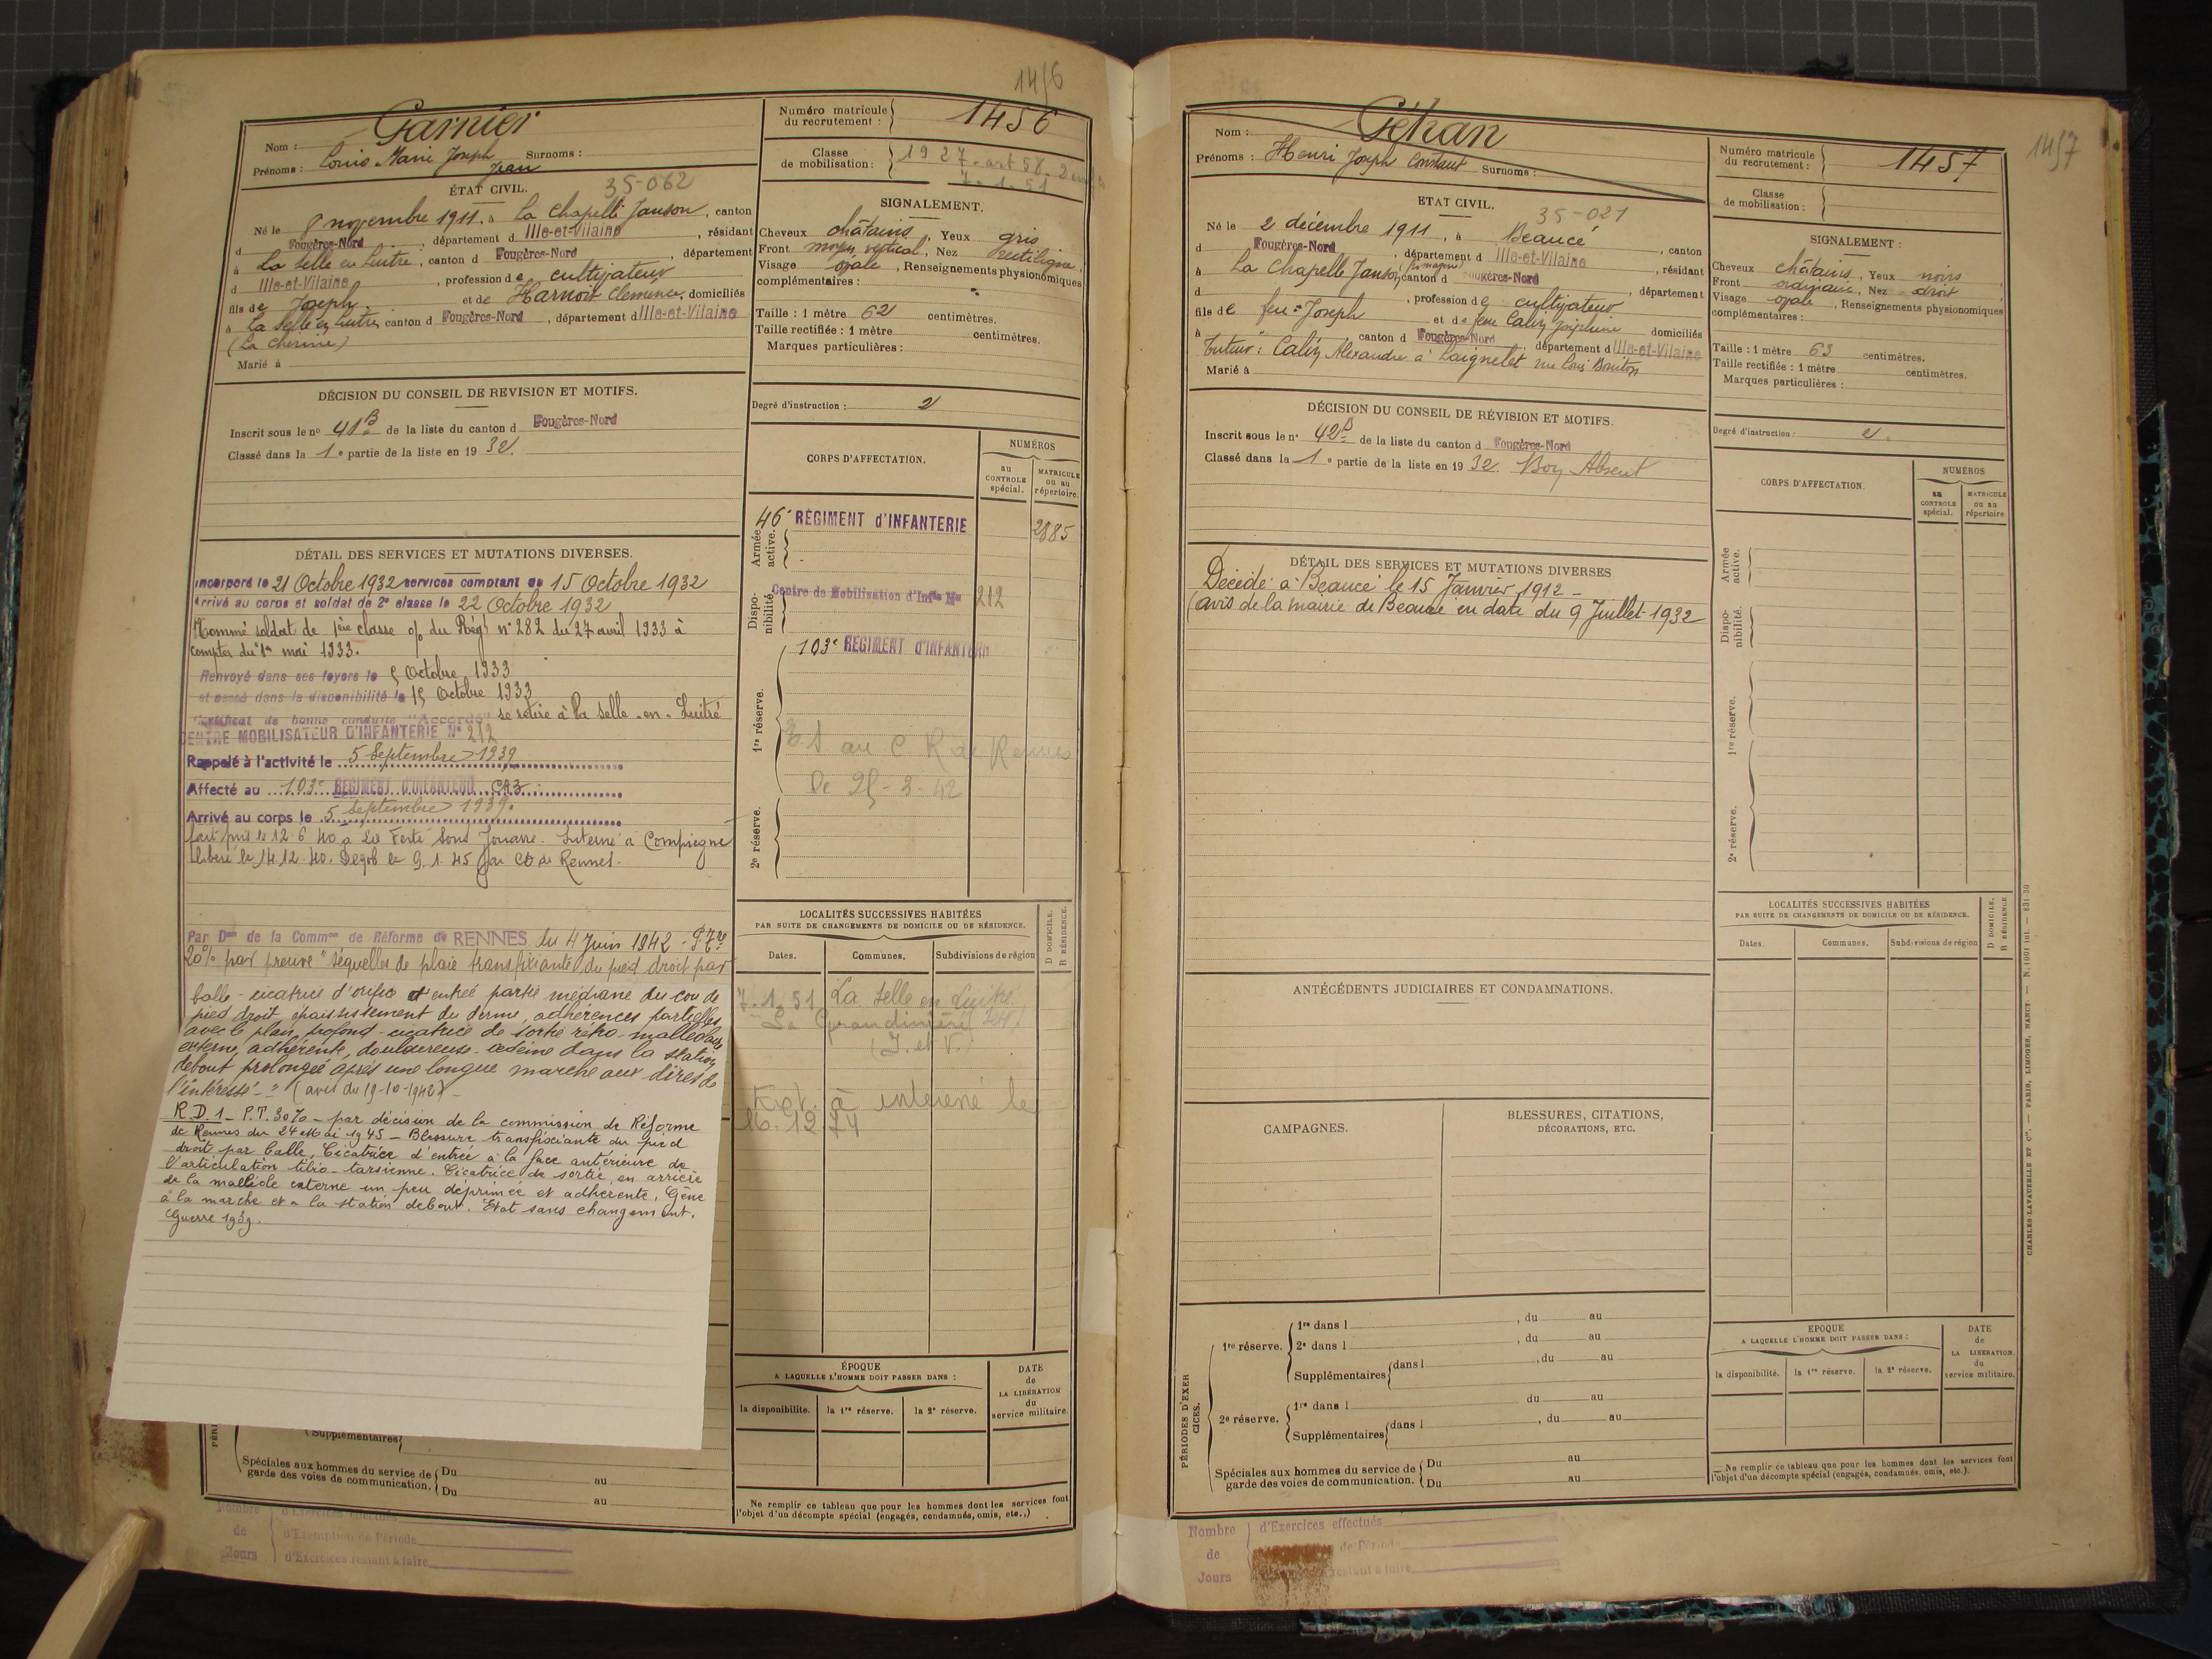 1456
Nom : Garnier
Prénoms : Louis Marie Joseph Jean Surnoms :
Numéro matricule du recrutement : 1456
Classe de mobilisation : 1927 - art 58. 2 enf
7. 1. 51
ÉTAT CIVIL.
35-062
Né le 8 novembre 1911, à La Chapelle Janson, canton
d Fougères-Nord, département d Ille-et-Vilaine, résidant
à La Selle en Luitré, canton d Fougères-Nord, département
d Ille-et-Vilaine, profession de cultivateur
fils de Joseph et de Harnois Clémence, domiciliés
à La Selle en Luitré, canton d Fougères-Nord, département d Ille-et-Vilaine
Marié à
SIGNALEMENT.
Cheveux châtains, Yeux gris
Front moyen vertical, Nez rectiligne,
Visage ovale, Renseignements physionomiques
complémentaires :
Taille : 1 mètre 62 centimètres.
Taille rectifiée : 1 mètre centimètres.
Marques particulières :
Degré d'instruction : 2
DÉCISION DU CONSEIL DE REVISION ET MOTIFS.
Inscrit sous le no 41B de la liste du canton d Fougères-Nord
Classé dans la 1e partie de la liste en 1932.
DÉTAIL DES SERVICES ET MUTATIONS DIVERSES.
Incorporé le 21 Octobre 1932 services comptant du 15 Octobre 1932
Arrivé au corps et soldat de 2e classe le 22 Octobre 1932
Nommé soldat de 1ère classe o/ du Régt n° 282 du 27 avril 1933 à
compter du 1er mai 1933.
Renvoyé dans ses foyers le 5 Octobre 1933
et passé dans la disponibilité le 15 Octobre 1933
Certificat de bonne conduite "Accordé" se retire à la Selle-en-Luitré
CENTRE MOBILISATEUR D'INFANTERIE N° 212
Rappelé à l'activité le 5 Septembre 1939
Affecté au 103e RÉGIMENT D'INFANTERIE CA3
Arrivé au corps le 5 Septembre 1939.
fait pris le 12.6.40 à La Ferté Sous Jouarre. Interné à Compiègne
libéré le 14.12.40. Dégob le 9.1.45 par CD de Rennes.
Par Don de la Common de Réforme de RENNES du 4 Juin 1942 - P.Tre
20% par preuve "séquelles de plaie transfixiante du pied droit par
balle - cicatrice d'orifice d'entrée partie médiane du cou de
pied droit, épaississement du derme, adhérences partielles
avec le plan profond - cicatrice de sortie rétro-malléolaire
externe, adhérente, douloureuse - oedème dans la station
debout prolongée après une longue marche aux dires de
l'intéressé - " (avis du 19-10-1942) -
R.D.1 - P.T. 30% - par décision de la commission de Réforme
de Rennes du 24 Mai 1945 - Blessure transfixiante du pied
droit par balle, Cicatrice d'entrée à la face antérieure de
l'articulation tibio-tarsienne. Cicatrice de sortie, en arrière
de la malléole externe un peu déprimée et adhérente, Gêne
à la marche et à la station debout. Etat sans changement.
Guerre 1939.
CORPS D'AFFECTATION.
NUMÉROS
au CONTROLE spécial.
MATRICULE ou au répertoire.
Armée active.
46e RÉGIMENT d'INFANTERIE 2885
Disponibilité.
Centre de Mobilisation d'Inftie No 212
1re réserve.
103e RÉGIMENT D'INFANTERIE
ES au C R de Rennes
De 25-3-42
2e réserve.
LOCALITÉS SUCCESSIVES HABITÉES
PAR SUITE DE CHANGEMENTS DE DOMICILE OU DE RÉSIDENCE.
D DOMICILE.
R RÉSIDENCE.
Dates. Communes. Subdivisions de région
7.1.51 La Selle en Luitré
(I. et V.)
Ext. à intéressé le
16.12.74
ÉPOQUE
A LAQUELLE L'HOMME DOIT PASSER DANS :
DATE de LA LIBÉRATION du service militaire.
la disponibilité. la 1re réserve. la 2e réserve.
Ne remplir ce tableau que pour les hommes dont les services font
l'objet d'un décompte spécial (engagés, condamnés, omis, etc.,)
Supplémentaires
Spéciales aux hommes du service de garde des voies de communication.
Du au
Du au
Nombre de Jours
d'Exercices effectués
d'Exemption de Période
d'Exercices restant à faire
1457
Nom : Géhan
Prénoms : Henri Joseph Constant Surnoms :
Numéro matricule du recrutement : 1457
Classe de mobilisation :
ETAT CIVIL.
35-021
Né le 2 décembre 1911, à Beaucé, canton
d Fougères-Nord, département d Ille-et-Vilaine, résidant
à La Chapelle Janson, canton d Fougères-Nord, département
d , profession de cultivateur
fils de feu Joseph et de feue Joséphine domiciliés
à , canton d Fougères-Nord, département d Ille-et-Vilaine
Tuteur : Alexandre à Laignelet
Marié à
SIGNALEMENT :
Cheveux châtains, Yeux noirs
Front ordinaire, Nez droit
Visage ovale, Renseignements physionomiques
complémentaires :
Taille : 1 mètre 63 centimètres.
Taille rectifiée : 1 mètre centimètres.
Marques particulières :
Degré d'instruction : 2
DÉCISION DU CONSEIL DE RÉVISION ET MOTIFS.
Inscrit sous le no 42B de la liste du canton d Fougères-Nord
Classé dans la 1e partie de la liste en 1932. Bon Absent
DÉTAIL DES SERVICES ET MUTATIONS DIVERSES
Décédé à Beaucé le 15 Janvier 1912 -
(avis de la mairie de Beaucé en date du 9 Juillet 1932
CORPS D'AFFECTATION.
NUMÉROS
au CONTROLE spécial.
MATRICULE ou au répertoire
Armée active.
Disponibilité.
1re réserve.
2e réserve.
ANTÉCÉDENTS JUDICIAIRES ET CONDAMNATIONS.
CAMPAGNES.
BLESSURES, CITATIONS,
DÉCORATIONS, ETC.
LOCALITÉS SUCCESSIVES HABITÉES
PAR SUITE DE CHANGEMENTS DE DOMICILE OU DE RÉSIDENCE.
D DOMICILE.
R RÉSIDENCE
Dates. Communes. Subdivisions de région
PÉRIODES D'EXERCICES.
1re réserve.
1re dans l , du au
2e dans l , du au
Supplémentaires dans l , du au
du au
2e réserve.
1re dans l du au
Supplémentaires dans l , du au
Spéciales aux hommes du service de garde des voies de communication.
Du au
Du au
EPOQUE
A LAQUELLE L'HOMME DOIT PASSER DANS :
DATE de LA LIBÉRATION. du service militaire.
la disponibilité. la 1re réserve. la 2e réserve.
Ne remplir ce tableau que pour les hommes dont les services font
l'objet d'un décompte spécial (engagés, condamnés, omis, etc.).
CHARLES-LAVAUZELLE ET Cie. — PARIS, LIMOGES, NANCY.
Nombre de Jours
d'Exercices effectués
de Période
restant à faire